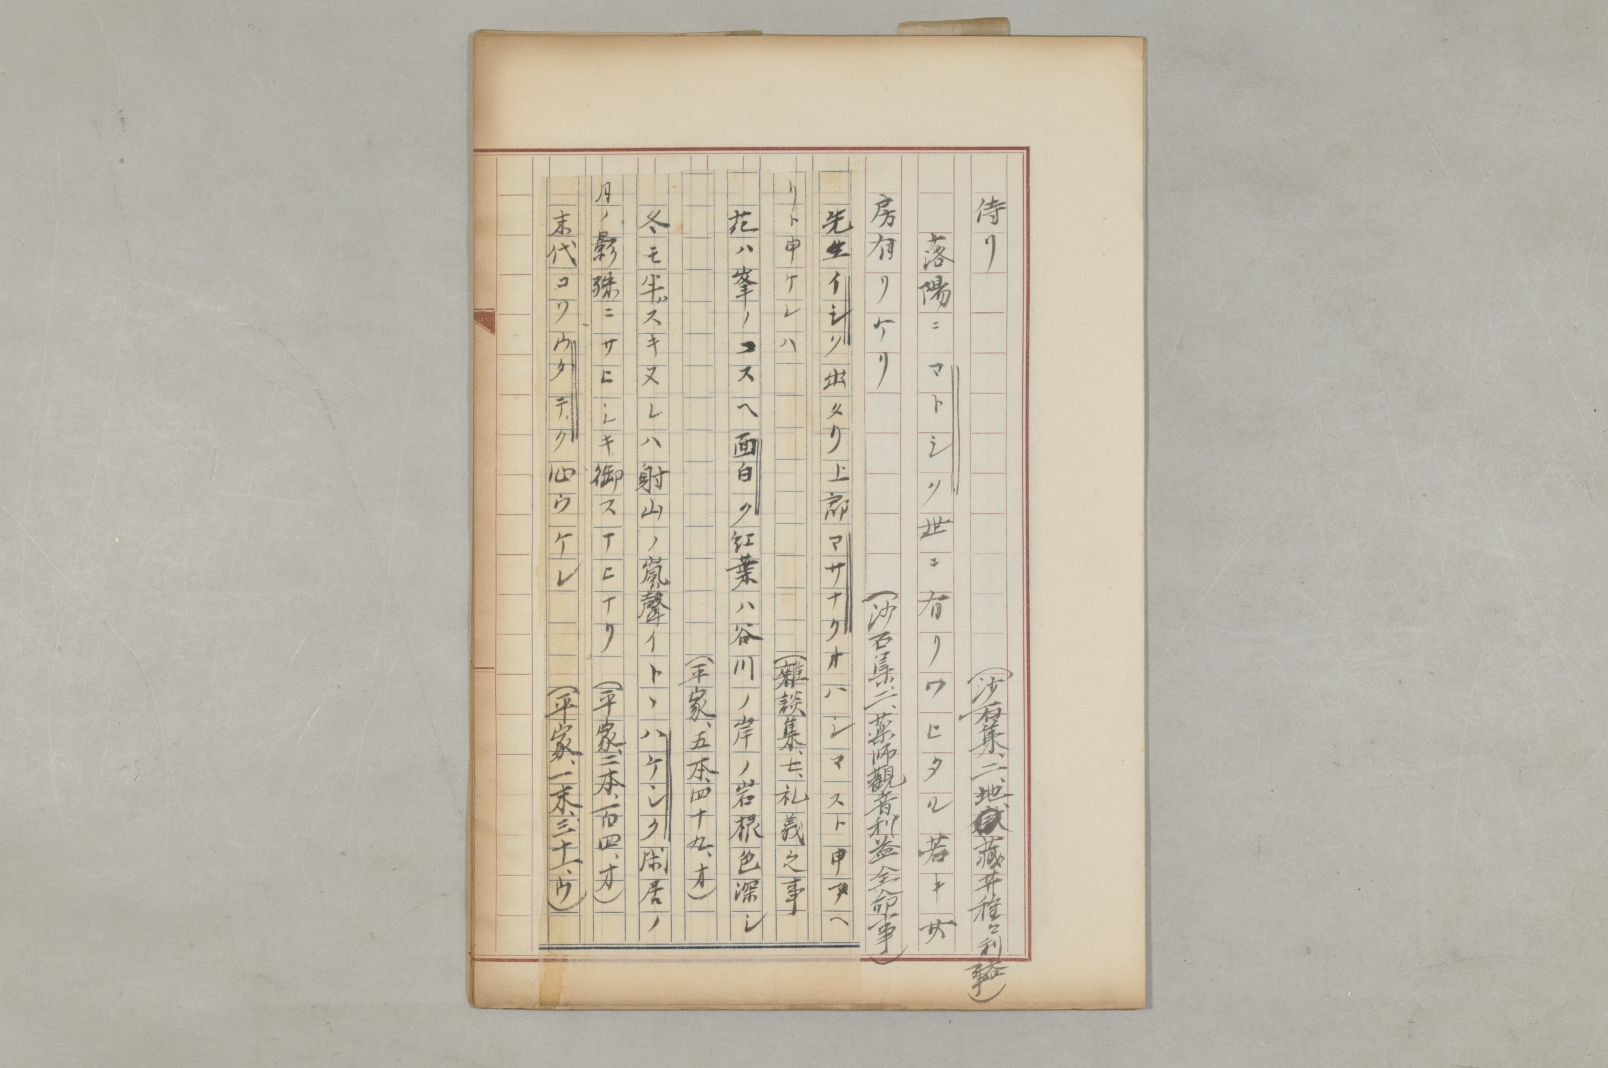 侍リ
(沙石集、二、地蔵菩薩種々利益事)
落陽ニマトシク世ニ有リワヒタル若キ女
房有リケリ
(沙石集二、薬師觀音利益全命事)
先生イシク出タリ上郎マサナクオハシマスト申タヘ
リト申ケレハ
(雜談集、七、礼義之事
花ハ峯ノコスヘ面白ク紅葉ハ谷川ノ岸ノ岩根色深シ
(平家、五本、四十九、オ)
冬モ半スキヌレハ射山ノ嵐聲イトヽハケシク閑居ノ
月ノ影殊ニサヒシキ御スマヒナリ
(平家、二本、百四、オ)
末代コソウタテク心ウケレ
(平家、一末、三十一、ウ)